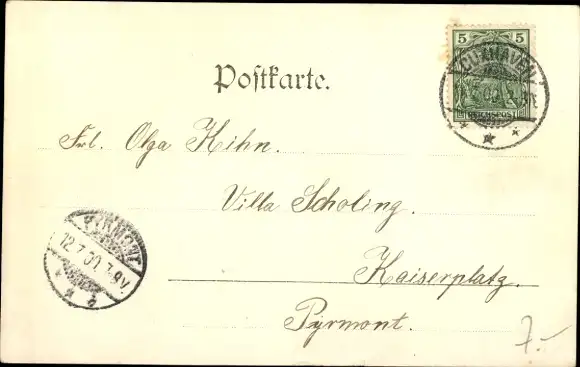 5 5
CUXHAVEN
REICHSPOST
Postkarte.
Frl. Olga Kihn.
Villa Scholing.
PYRMONT
12.7.00. 7-8V.
Kaiserplatz.
Pyrmont.
7.-